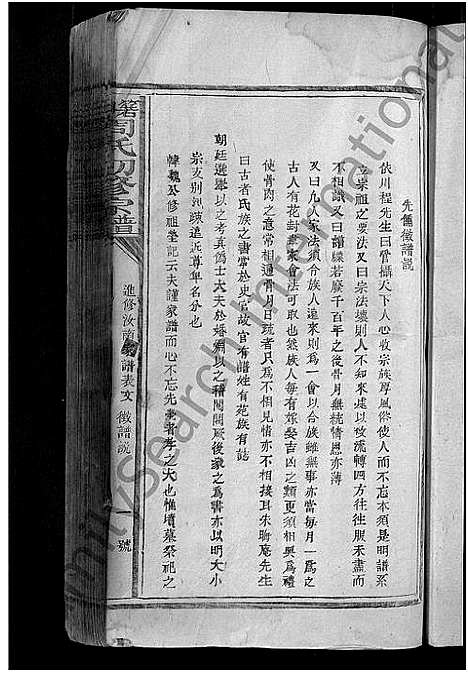 先儒徵譜說
依川程先生曰管攝天下人心收宗族厚風俗使人而不忘本須是明譜系
立宗祖之要法又曰宗法壞則人不知來處以致流轉四方往往服未盡而
不相識又曰譜牒若廢千百年之後骨月無統情恩亦薄
又曰凡人家法須合族人遠來則為一會以合族雖無事亦當每月一為之
古人有花封韋家會法可取也然族人每有嫁娶吉凶之類更須相與為禮
使骨肉之意常相通骨月日疏者只為不相見情亦不相接耳朱晦庵先生
曰古者氏族之書當於史官故官有譜姓有苑族有誌
朝廷選舉以之考真偽士大夫於婚姻以之稽閥閱厥後家之為書亦以明大小
宗支别別疎遠近尊卑名分也
韓魏公修祖塋記云夫謹家譜而心不忘先塋者孝之大也惟墳墓祭祀之
周氏初修宗譜
進修汝南家譜表文 徵譜說 一號
MitySearch International